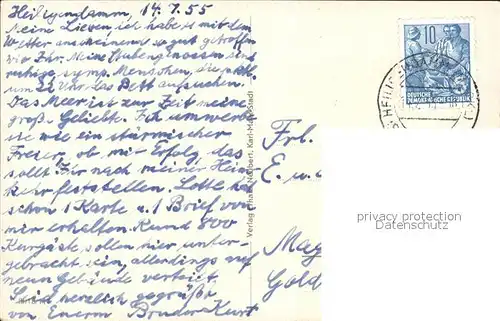 Heiligendamm, 14.7.55
Meine Lieben, ich habe es mit dem
Wetter anscheinend so gut getroffen
wie Ihr. Meine Stubengenossen sind
ruhige symp. Menschen, die nach
um 22 Uhr das Bett aufsuchen.
Das Meer ist zur Zeit meine
große Geliebte. Ich umwerbe
sie wie ein stürmischer
Freier, ob mit Erfolg, das
sollt Ihr nach meiner Heim
kehr feststellen. Lotte hat
schon 1 Karte u. 1 Brief von
mir erhalten. Rund 800
Kurgäste sollen hier unter-
gebracht sein, allerdings auf
neun Gebäude verteilt.
Seid herzlich gegrüßt
von Euerm Bruder Kurt
Verlag Erhard Neubert, Karl-Marx-Stadt
10
DEUTSCHE
DEMOKRATISCHE REPUBLIK
HEILIGENDAMM
Frl.
E. u.
Mag
Gold
privacy protection
Datenschutz